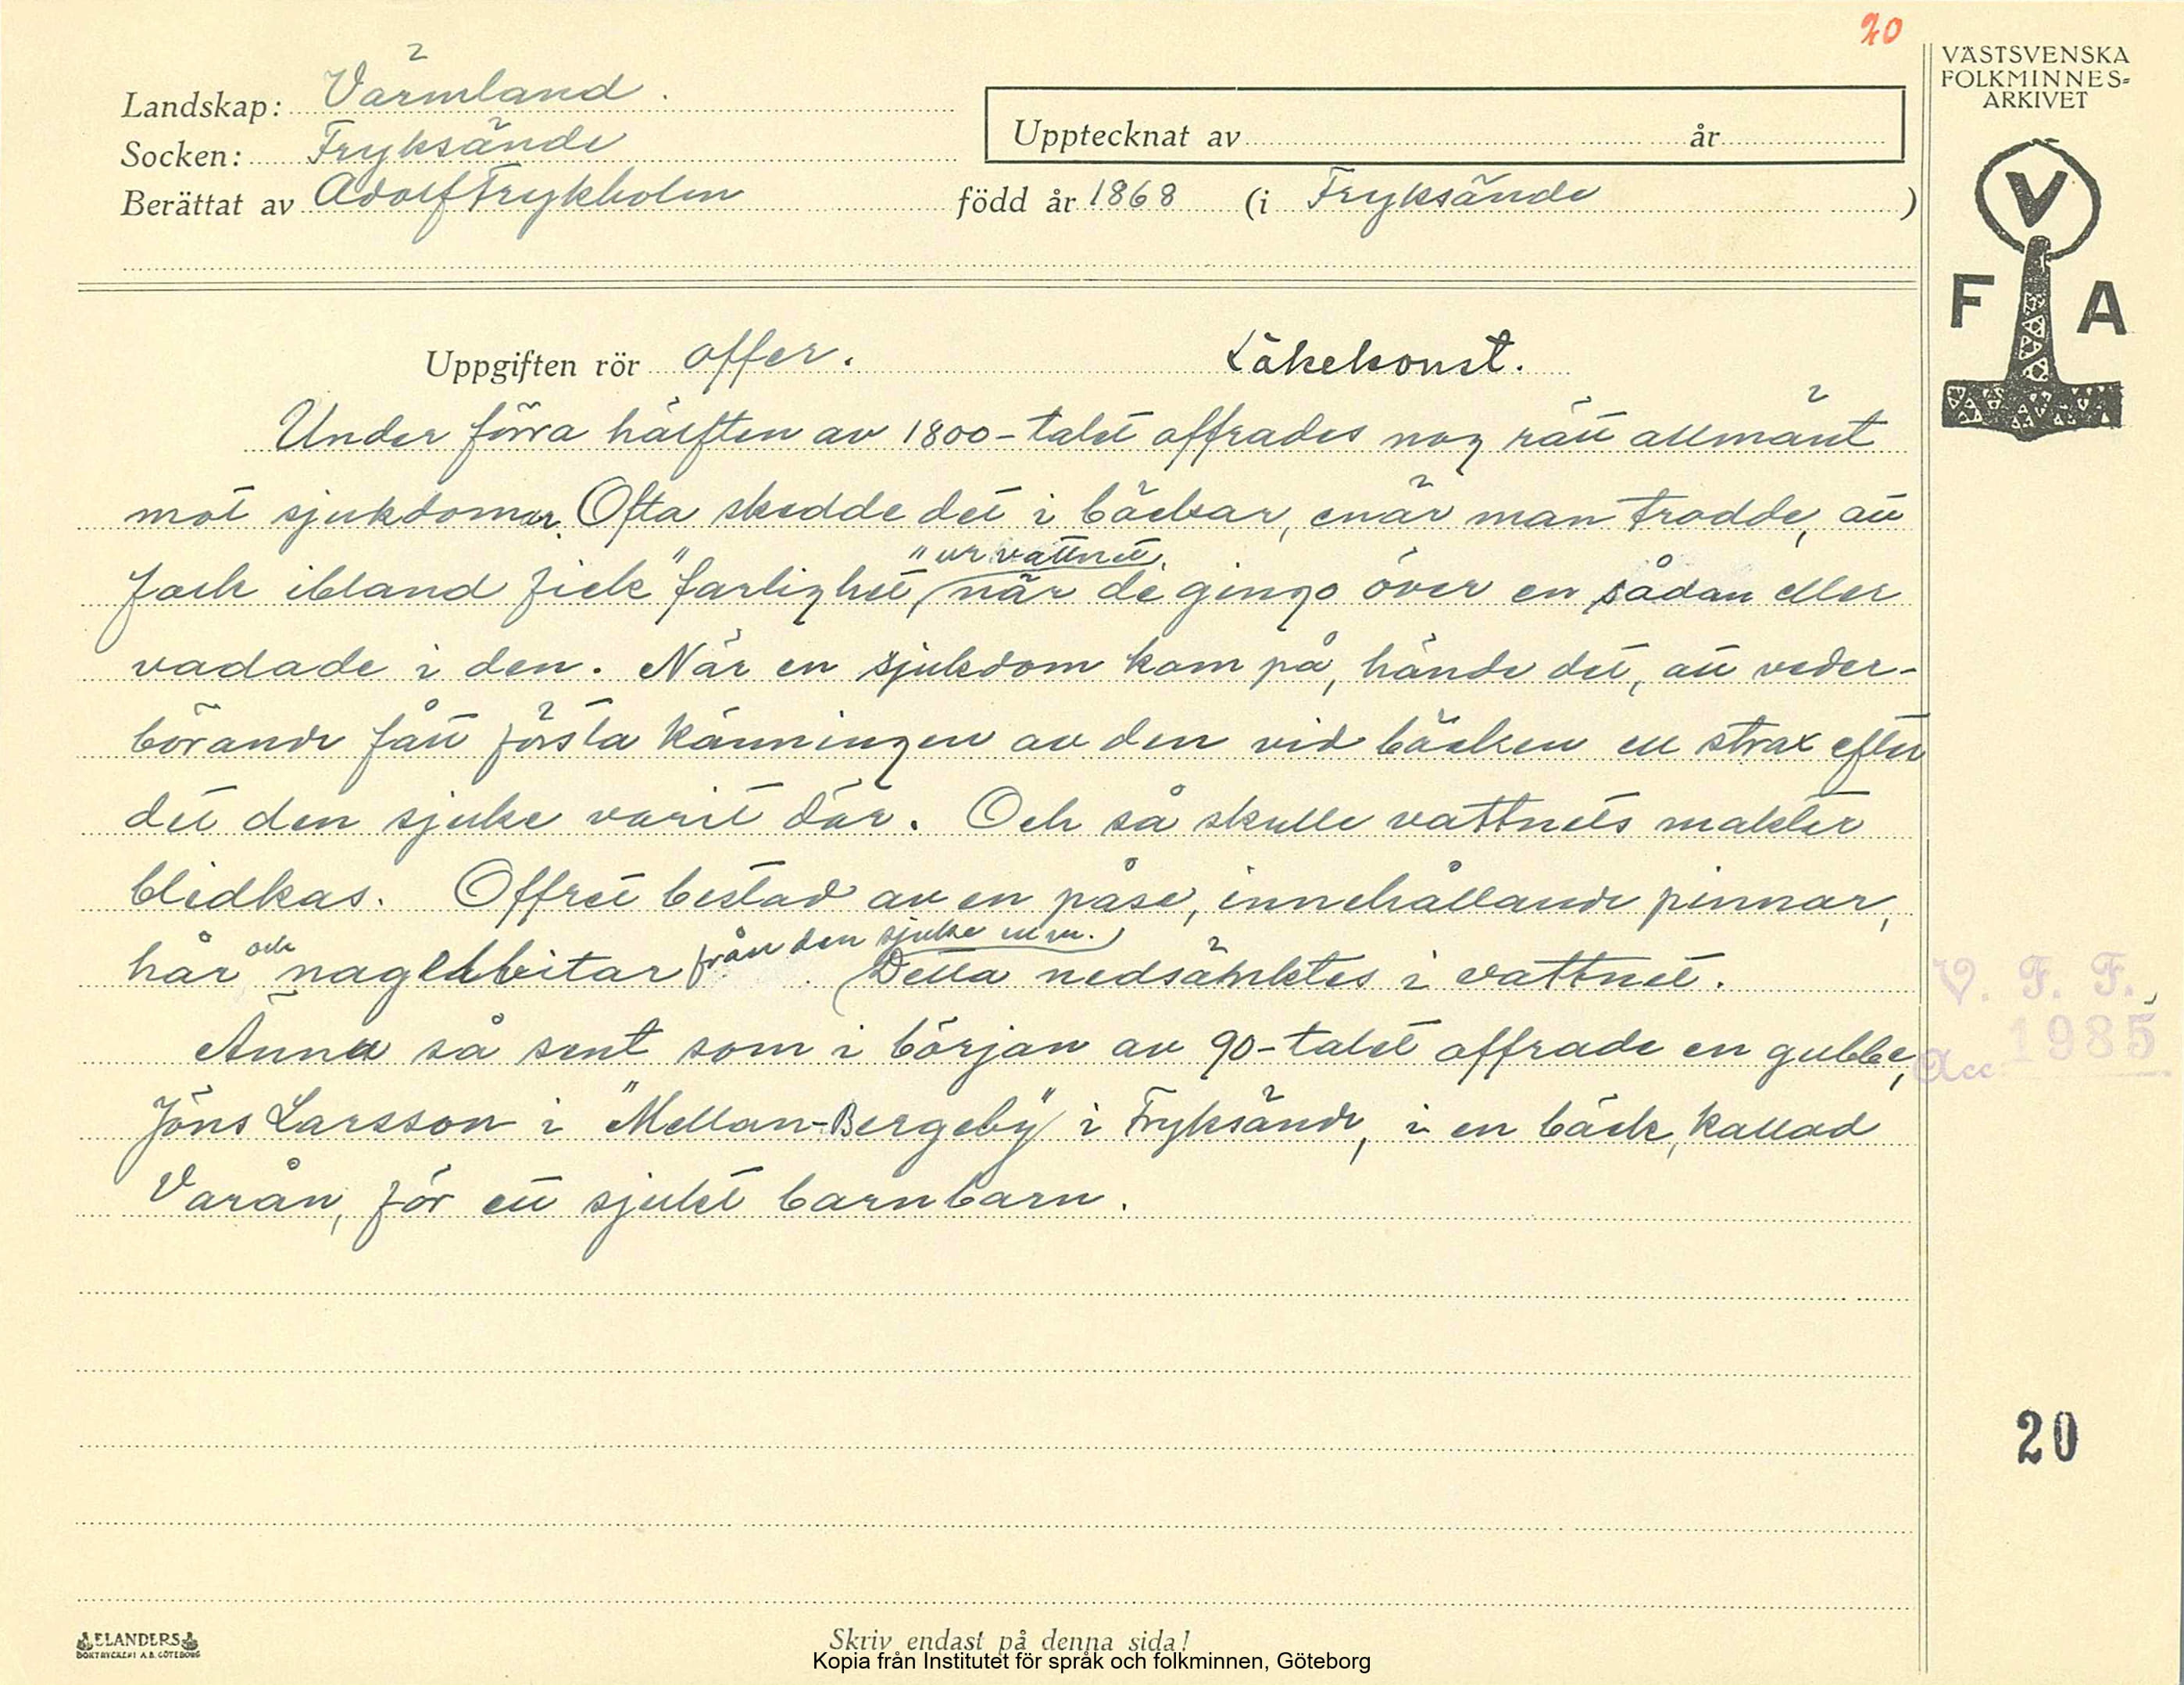 20
VÄSTSVENSKA
FOLKMINNES=
ARKIVET
Landskap: Värmland.
Socken: Fryksände
Upptecknat av år
Berättat av Adolf Frykholm född år 1868 (i Fryksände)
V
F A
Uppgiften rör offer. Läkekonst.
Under förra hälften av 1800-talet offrades nog rätt allmänt
mot sjukdomar. Ofta skedde det i bäckar, enär man trodde, att
folk ibland fick "farlighet" ur vattnet, när de gingo över en sådan eller
vadade i den. När en sjukdom kom på, hände det, att veder-
börande fått första känningen av den vid bäcken el strax efter
det den sjuke varit där. Och så skulle vattnets makter
blidkas. Offret bestod av en påse, innehållande pinnar,
hår och nagelbitar från den sjuke m.m. Detta nedsänktes i vattnet.
Ännu så sent som i början av 90-talet offrade en gubbe,
Jöns Larsson i "Mellan-Bergeby" i Fryksände, i en bäck, kallad
Varån, för ett sjukt barnbarn.
V. F. F.,
Acc. 1985
20
ELANDERS
BOKTRYCKERI A.B. GÖTEBORG
Skriv endast på denna sida!
Kopia från Institutet för språk och folkminnen, Göteborg